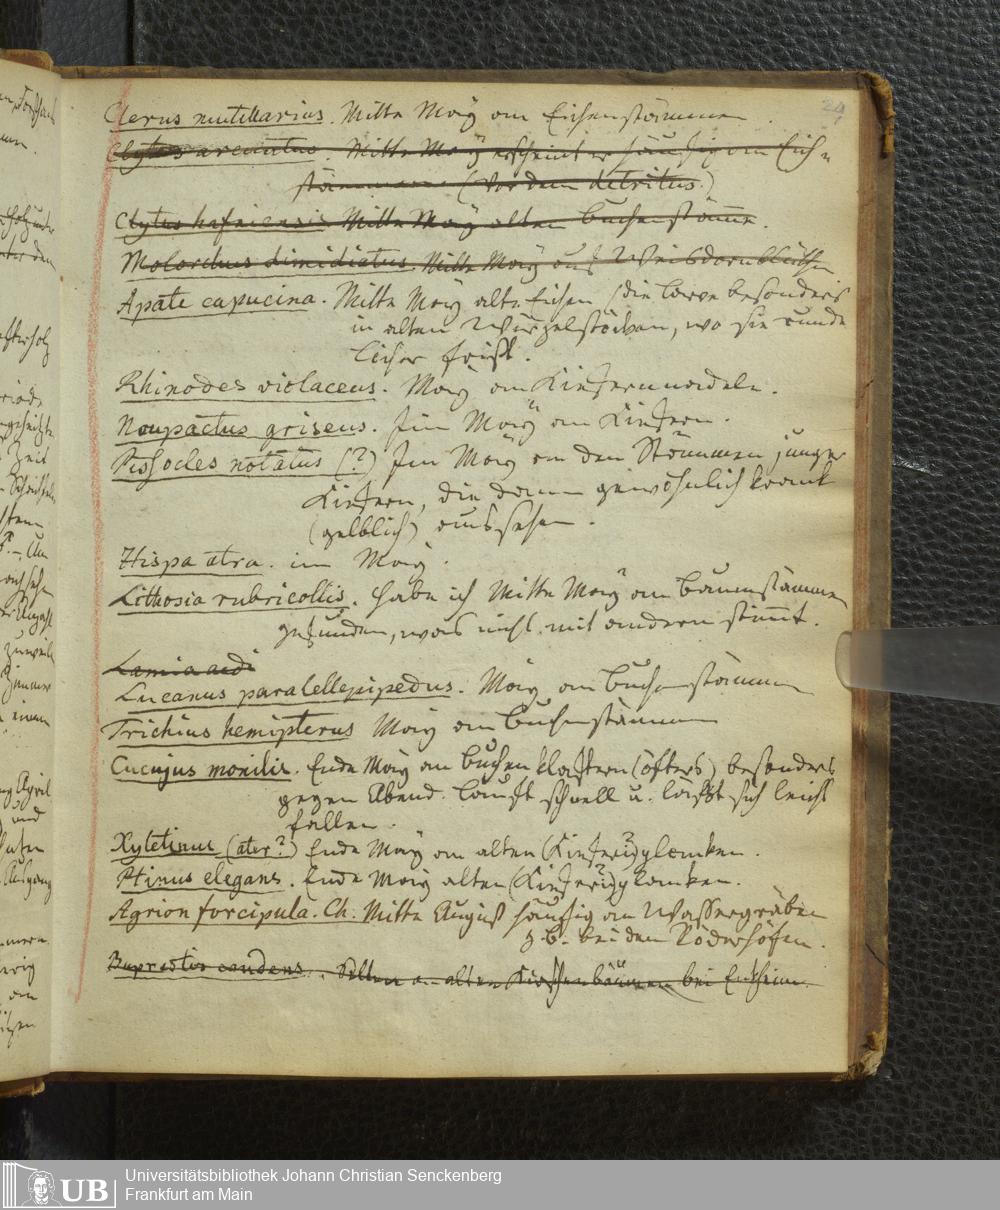 24
Clerus mutillarius. Mitte May an Eichenstämmen.
Clytus arcuatus. Mitte May erscheint er häufig an Eich-
stämmen (Vordem detritus.)
Clytus hafniensis Mitte May alten Buchenstämme.
Molorchus dimidiatus. Mitte May auf Weisdornblüthen
Apate capucina. Mitte May alte Eichen (die Larve besonders
in alten Wurzelstöcken, wo sie runde
Löcher frißt.
Rhinodes violaceus. May an Kiefernnadeln.
Naupactus griseus. Im May an Kiefern.
Pissodes notatus (?) Im May an den Stämmen junger
Kiefern, die dann gewöhnlich krank
(gelblich) aussehen.
Hispa atra. im May.
Lithosia rubricollis. Habe ich Mitte May an Baumstämmen
gefunden, was nicht mit andern stimt.
Lamia aedi
Lucanus paralellepipedus. May an Buchenstämmen
Trichius hemipterus May an Buchenstämmen
Cucujus monilis. Ende May an Buchenklaftern (öfters) besonders
gegen Abend. Lauft schnell u. läßt sich leicht
fallen.
Xyletinus (ater?) Ende May an alten (Kiefern?) planken.
Ptinus elegans. Ende May alten (Kiefern?) planken.
Agrion forcipula. Ch. Mitte August häufig an Wassergräben
z.B. bei den Röderhöfen.
Buprestis candens. Selten an alten Kirschenbäumen bei Enkheim.
Universitätsbibliothek Johann Christian Senckenberg
Frankfurt am Main
UB